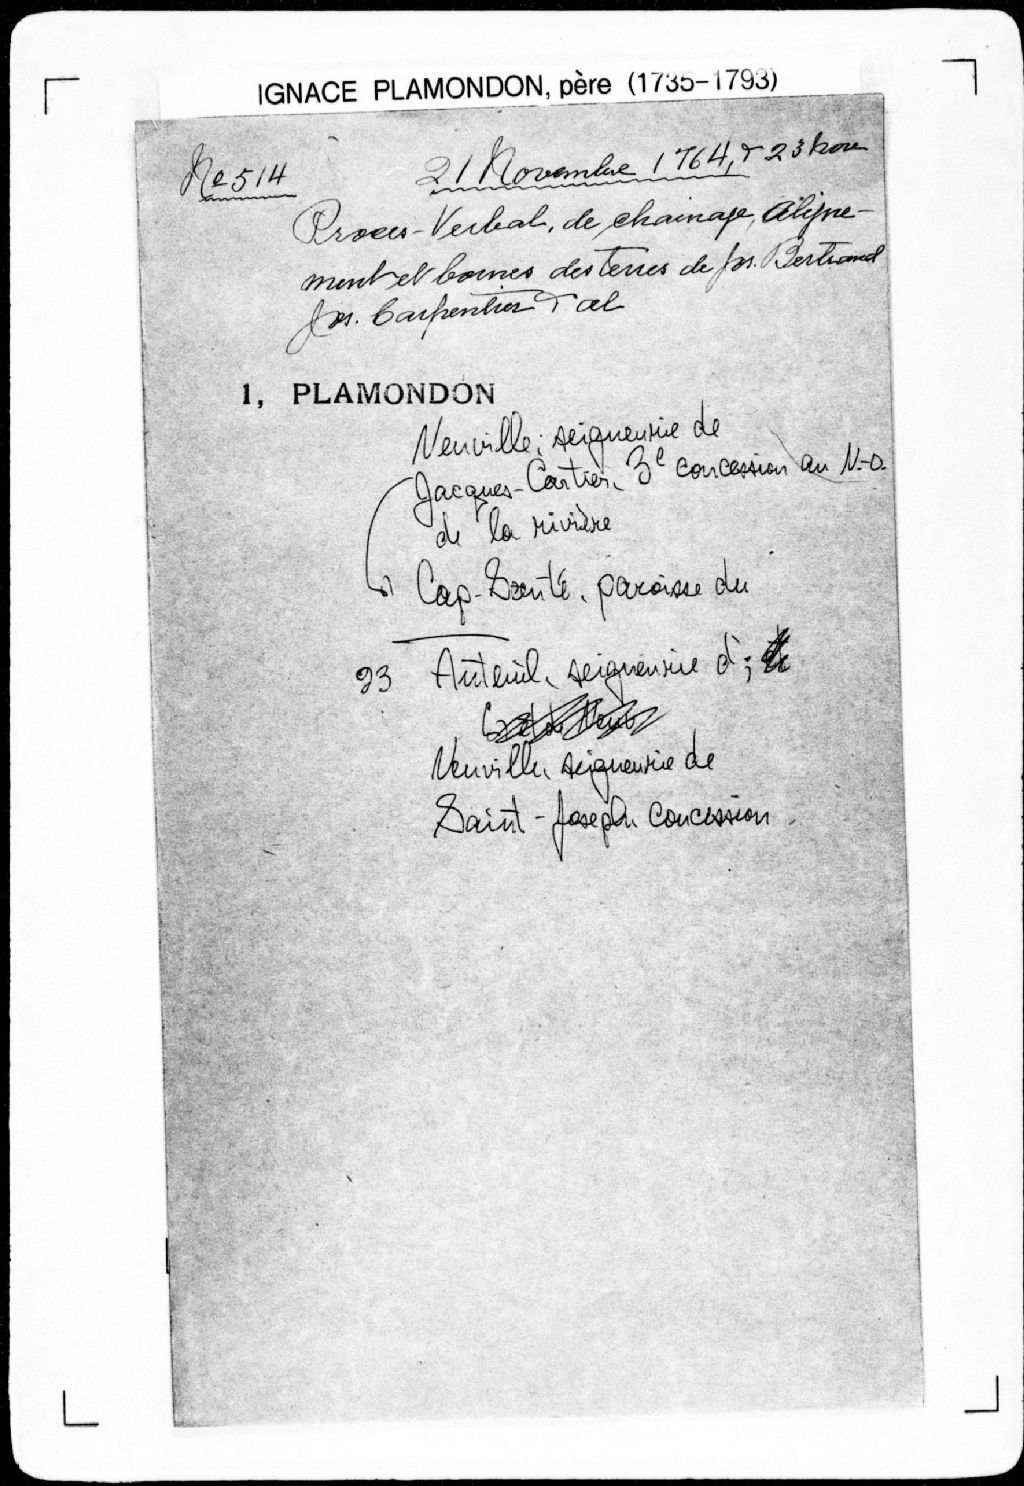 IGNACE PLAMONDON, père (1735-1793)
No 514
21 Novembre 1764, & 23 Nov
Proces-Verbal, de chainage, Aligne-
ment et bornes des terres de Jos. Bertrand
Jos. Carpentier & al
1, PLAMONDON
Neuville, seigneurie de
Jacques-Cartier, 3e concession au N.-O.
de la rivière
Cap-Santé, paroisse du
23 Auteuil, seigneurie d';
Neuville, seigneurie de
Saint-Joseph, concession